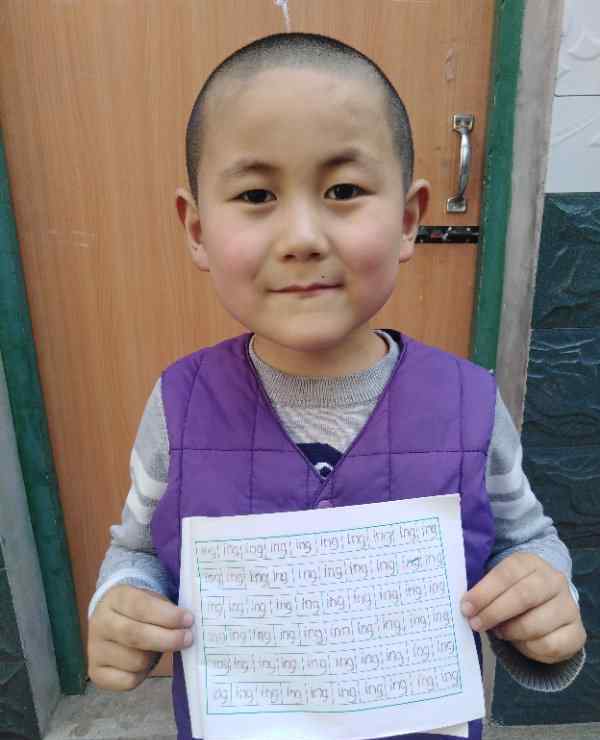 ing ing ing ing ing ing ing ing ing ing
ing ing ing ing ing ing ing ing ing ing
ing ing ing ing ing ing ing ing ing ing
ing ing ing ing ing ing ing ing ing ing
ing ing ing ing ing ing ing ing ing ing
ing ing ing ing ing ing ing ing ing ing